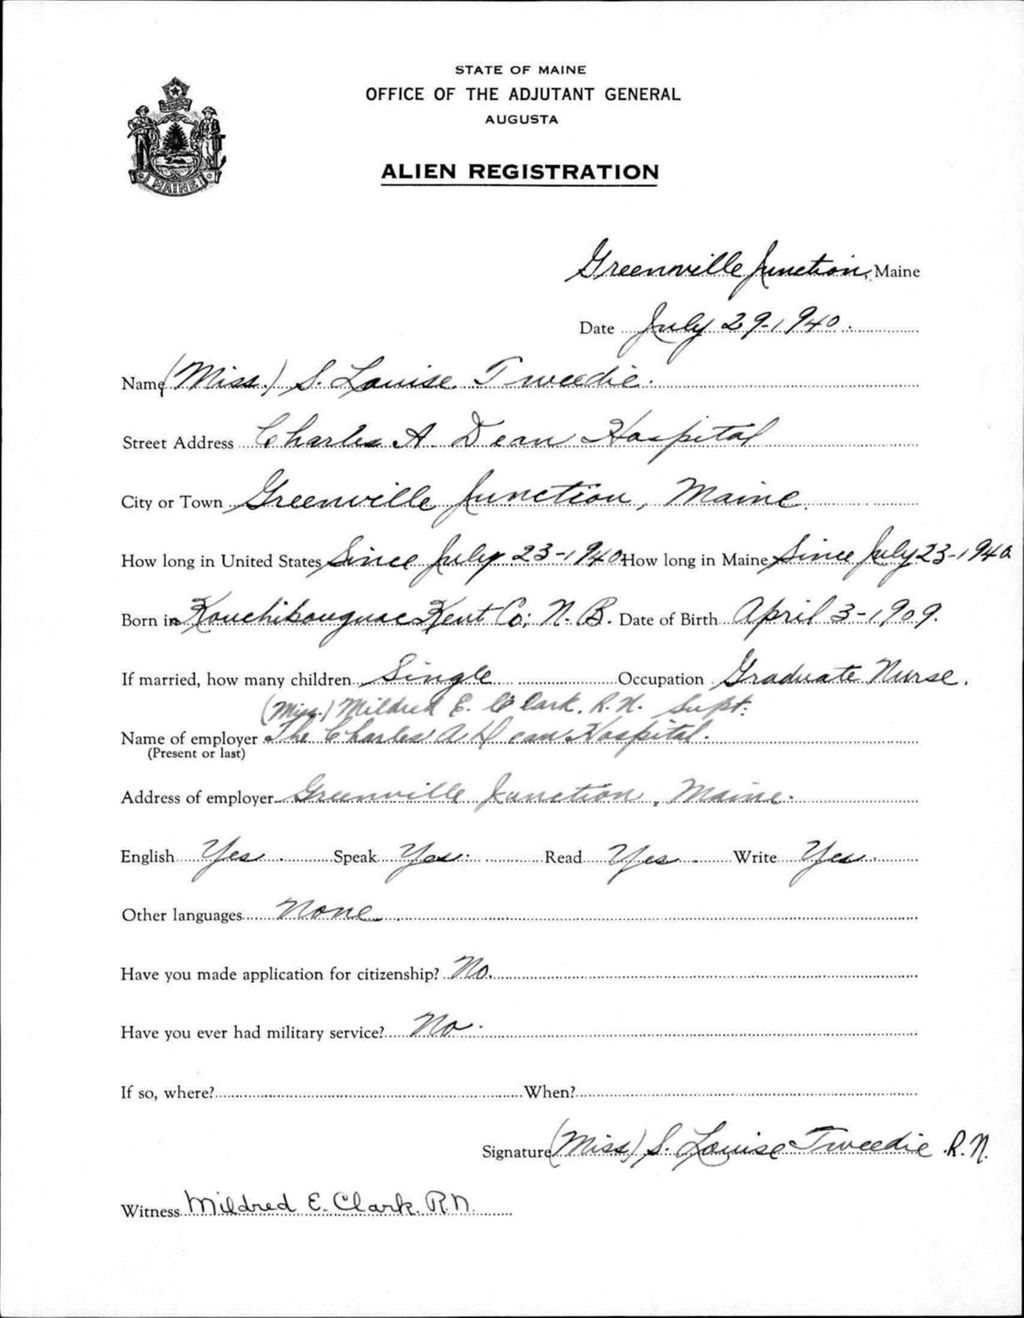 STATE OF MAINE
OFFICE OF THE ADJUTANT GENERAL
AUGUSTA
ALIEN REGISTRATION
MAINE
Greenville Junction, Maine
Date July 29-1940.
Name (Miss.) S. Louise Tweedie.
Street Address Charles A Dean Hospital
City or Town Greenville Junction, Maine.
How long in United States Since July 23-1940 How long in Maine Since July 23-1940
Born in Kouchibouguac Kent Co; N.B. Date of Birth April 3-1909.
If married, how many children Single Occupation Graduate Nurse.
(Miss.) Mildred E. Clark, R.N. Supt.
Name of employer The Charles A Dean Hospital.
(Present or last)
Address of employer Greenville Junction, Maine.
English Yes. Speak Yes. Read Yes. Write Yes.
Other languages None.
Have you made application for citizenship? No.
Have you ever had military service? No.
If so, where? When?
Signature (Miss) S. Louise Tweedie R.N.
Witness Mildred E. Clark, R.N.